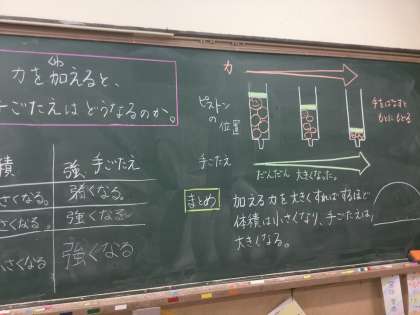 力を加えると、
手ごたえはどうなるのか。
積
強、手ごたえ
さくなる。
弱くなる。
さくなる。
強くなる
さくなる
強くなる
力
ピストンの位置
手をはなすと
もとにもどる
手ごたえ
だんだん 大きくなった。
まとめ
加える力を大きくすればするほど
体積は小さくなり、手ごたえは、
大きくなる。